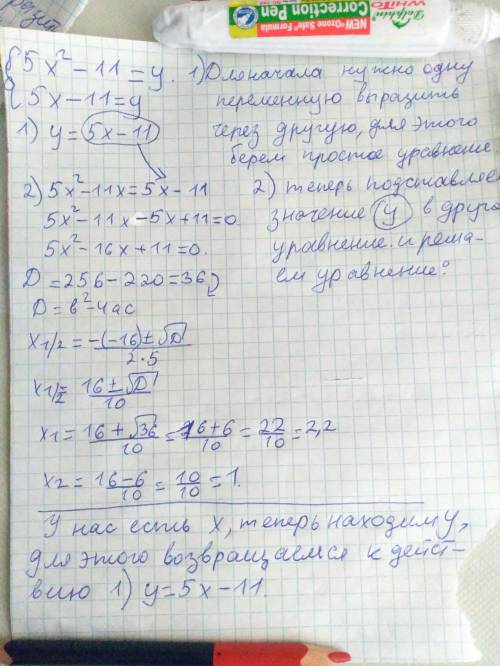 Dolphin
WHITO
NEW "Ozone Safe" Formula
Correction Pen
5x² - 11 = y.
5x - 11 = y
1) y = 5x - 11
1) Для начала нужно одну
переменную выразить
через другую, для этого
берем простое уравнение
2) 5x² - 11x = 5x - 11
5x² - 11x - 5x + 11 = 0.
5x² - 16x + 11 = 0.
2) теперь подставляем
значение y в друго
уравнение и реша-
ем уравнение:
D = 256 - 220 = 36
D = в² - 4ас
x1/2 = -(-16) ± √D / 2·5
x1/2 = 16 ± √D / 10
x1 = 16 + √36 / 10 = 16 + 6 / 10 = 22 / 10 = 2,2
x2 = 16 - 6 / 10 = 10 / 10 = 1.
У нас есть x, теперь находим y,
для этого возвращаемся к дейст-
вию 1) y = 5x - 11.